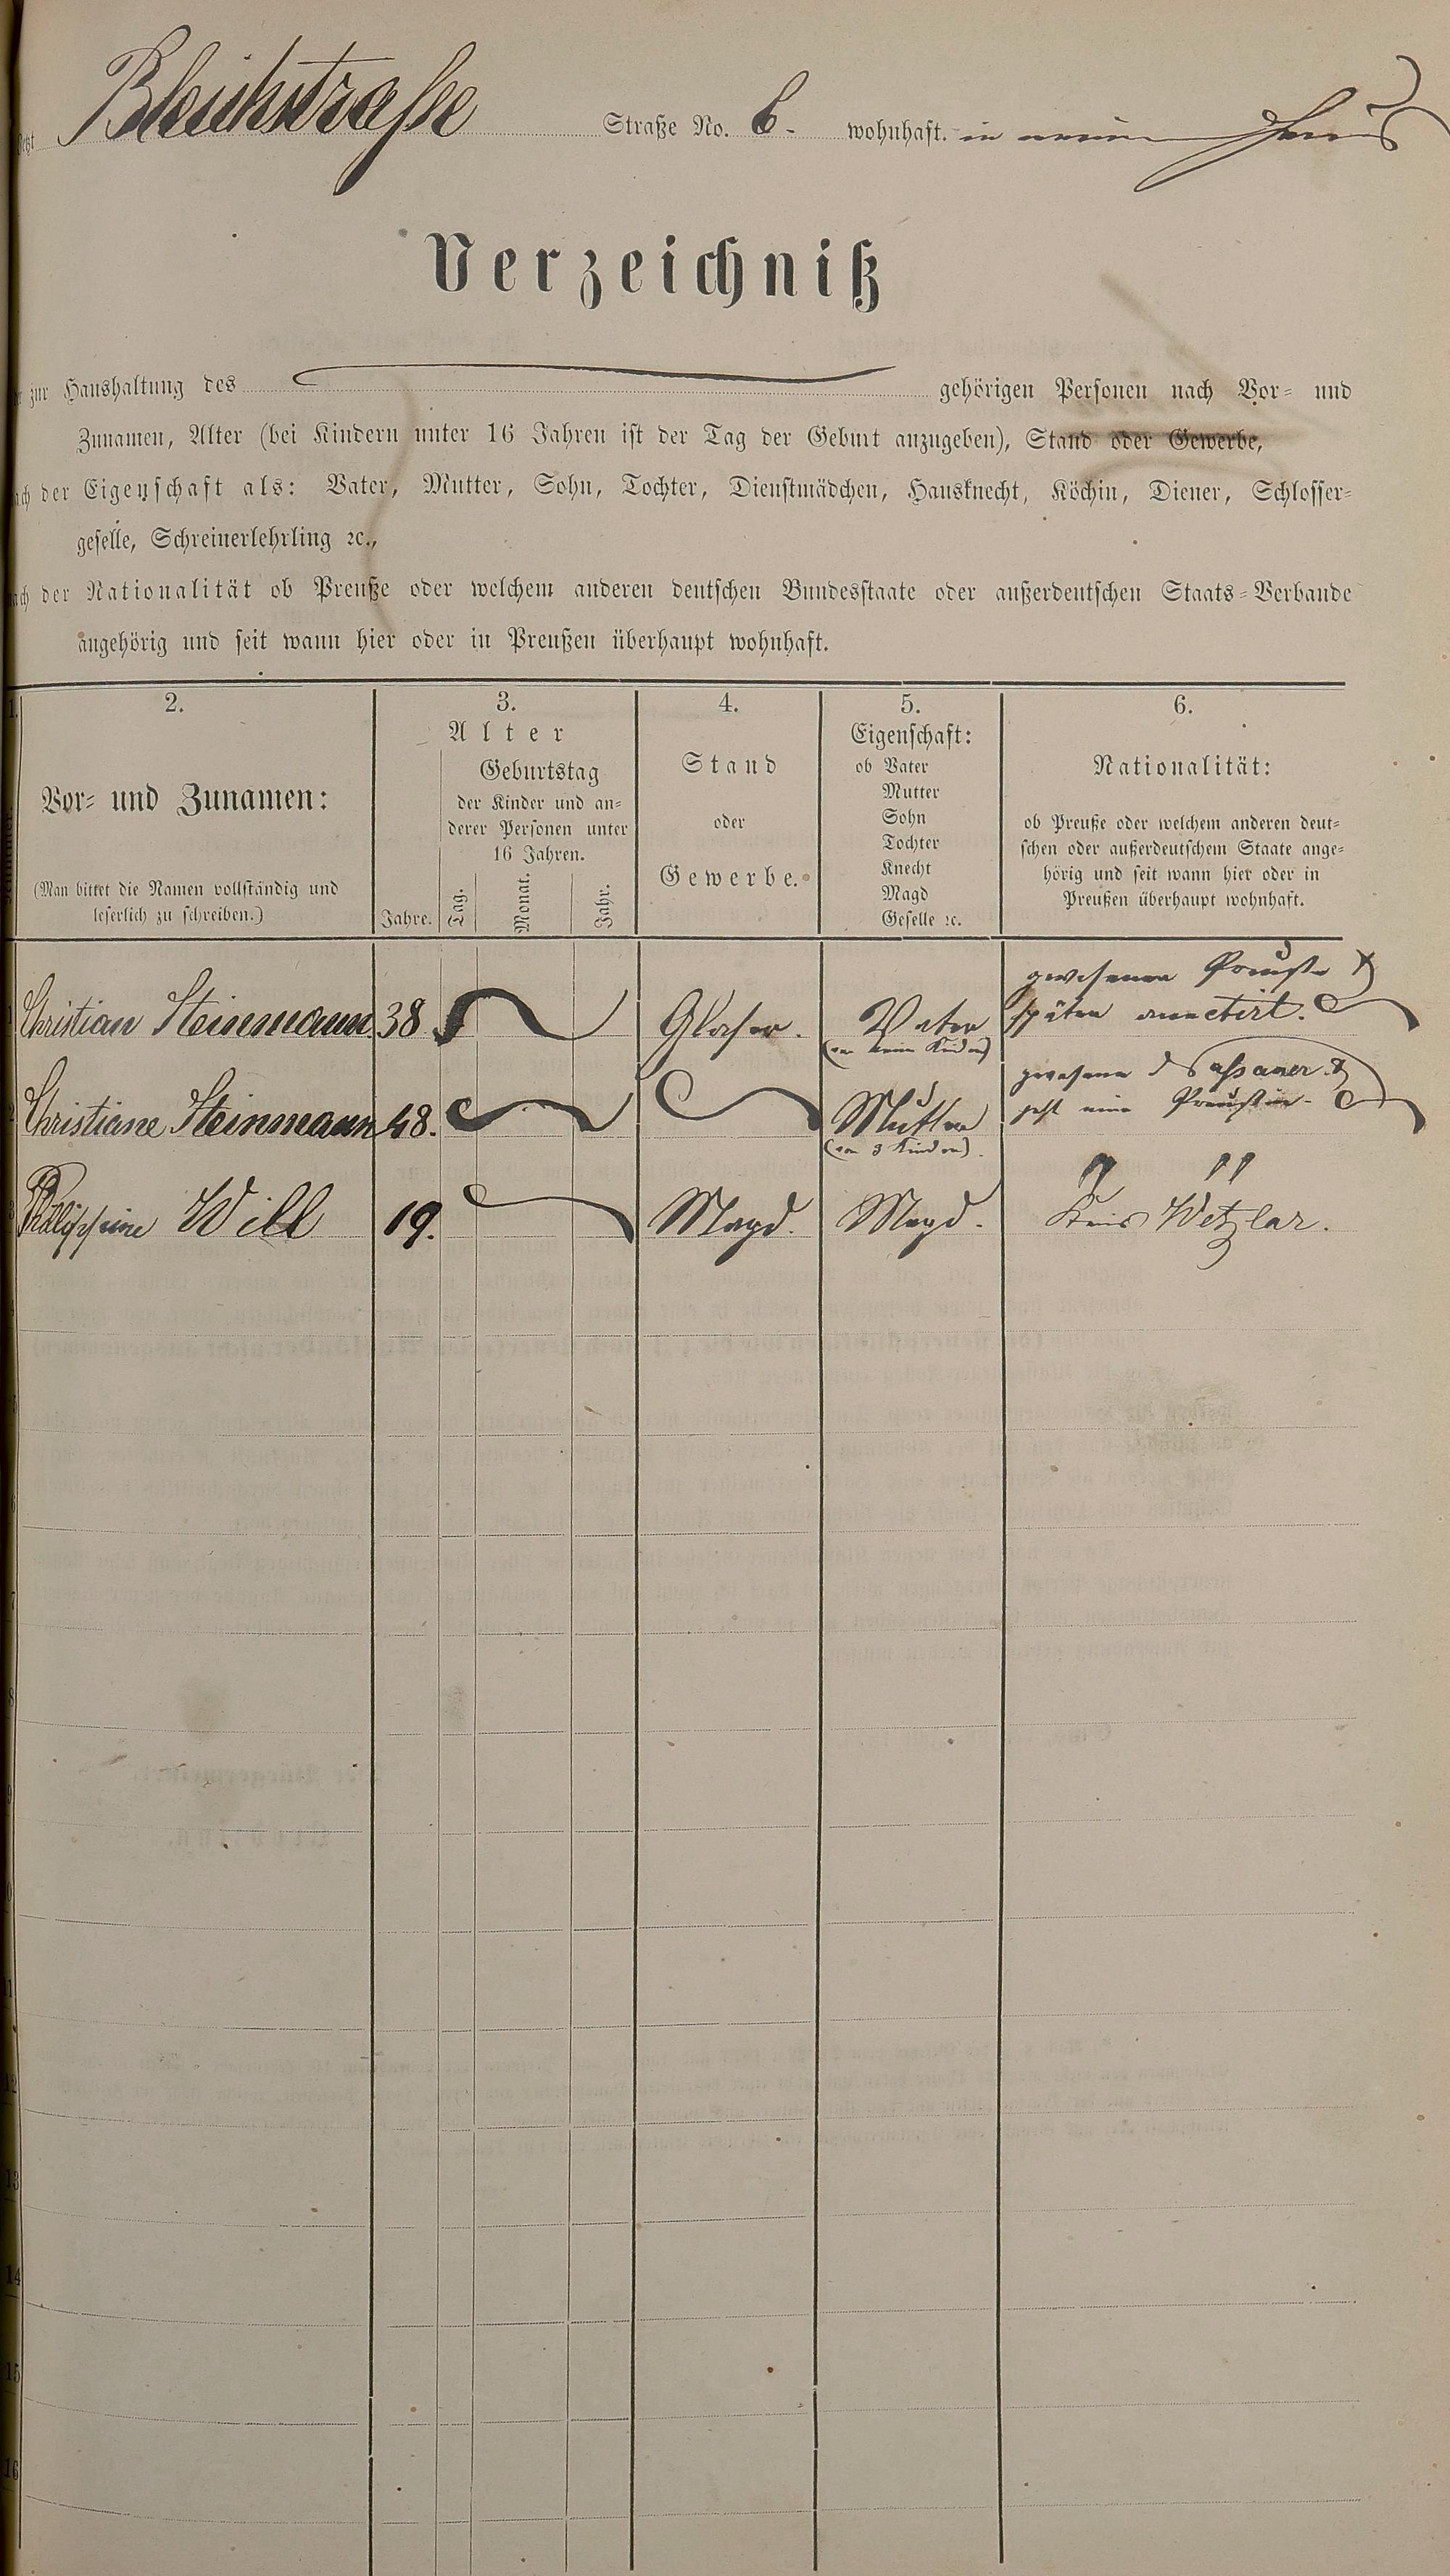 Bleichstraße Straße No. 6. wohnhaft. in neuen Haus
Verzeichniß
zur Haushaltung des gehörigen Personen nach Vor- und
Zunamen, Alter (bei Kindern unter 16 Jahren ist der Tag der Geburt anzugeben), Stand oder Gewerbe,
der Eigenschaft als: Vater, Mutter, Sohn, Tochter, Dienstmädchen, Hausknecht, Köchin, Diener, Schlosser-
geselle, Schreinerlehrling ꝛc.,
der Nationalität ob Preuße oder welchem anderen deutschen Bundesstaate oder außerdeutschen Staats-Verbande
angehörig und seit wann hier oder in Preußen überhaupt wohnhaft.
1. 2. 3. 4. 5. 6.
Vor- und Zunamen:
(Man bittet die Namen vollständig und
leserlich zu schreiben.)
Alter
Jahre.
Geburtstag
der Kinder und an-
derer Personen unter
16 Jahren.
Tag. Monat. Jahr.
Stand
oder
Gewerbe.
Eigenschaft:
ob Vater
Mutter
Sohn
Tochter
Knecht
Magd
Geselle ꝛc.
Nationalität:
ob Preuße oder welchem anderen deut-
schen oder außerdeutschem Staate ange-
hörig und seit wann hier oder in
Preußen überhaupt wohnhaft.
gewesener Preuße
1 Christian Steinmann. 38 Glaser. Vater später annectirt.
(von keine Kinder)
gewesene Nassauer
2 Christiane Steinmann 48. Mutter jetzt eine Preußin.
(von 3 Kinder).
" "
3 Philippine Will 19. Magd. Magd. Kreis Wetzlar.
8
9
11
12
13
14
15
16